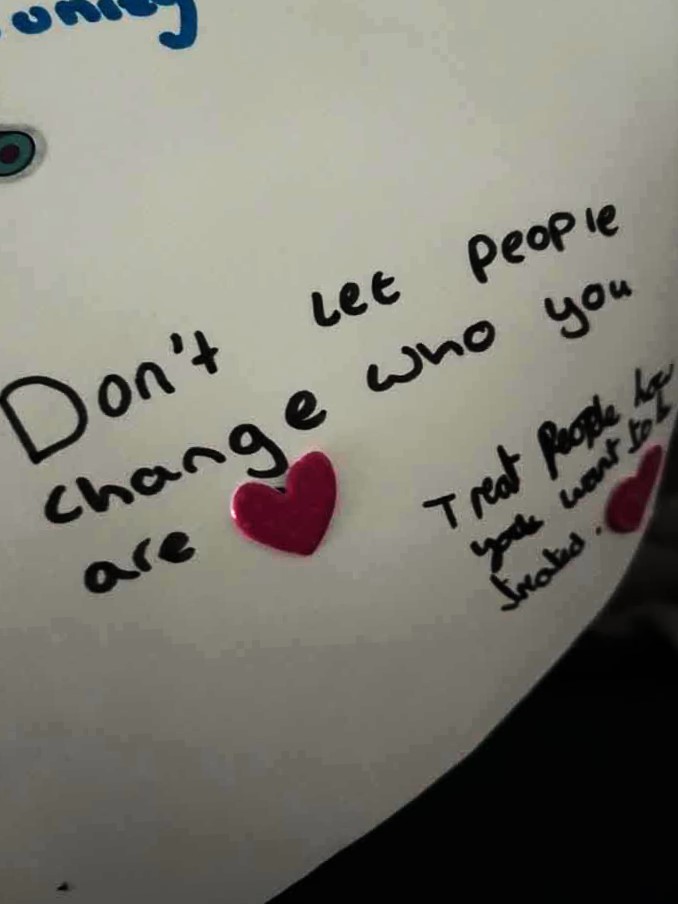 Don't Let people
change who you
are
Treat people how
you want to be
treated.